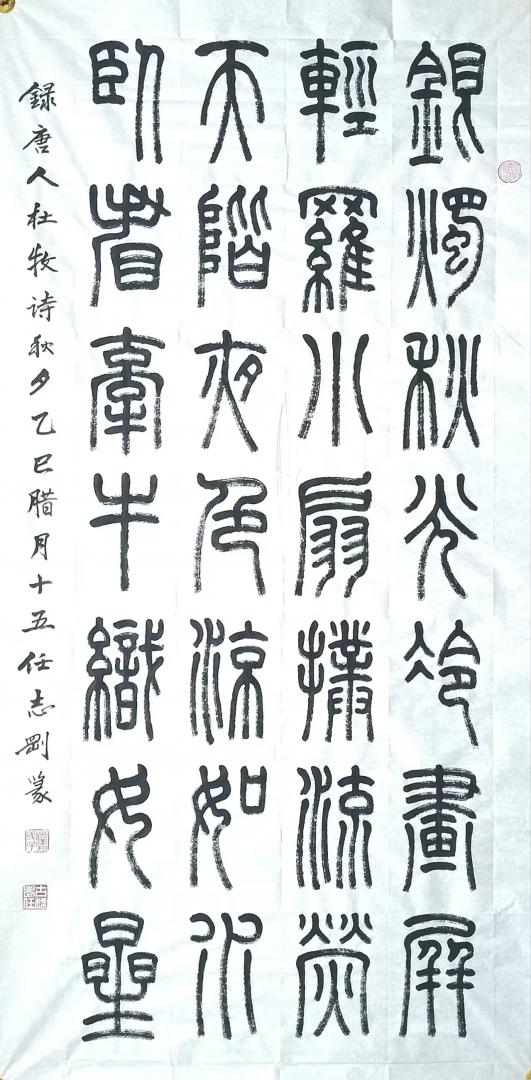 銀燭秋光冷畫屏
輕羅小扇撲流螢
天階夜色涼如水
臥看牽牛織女星
録唐人杜牧诗秋夕乙巳腊月十五任志剛篆